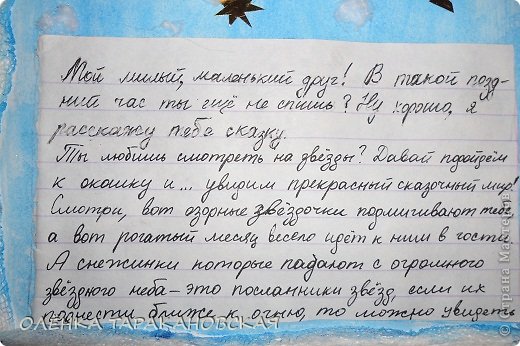 Мой милый, маленький друг! В такой позд-
ний час ты ещё не спишь? Ну хорошо, я
расскажу тебе сказку.
Ты любишь смотреть на звёзды? Давай подойдём
к окошку и... увидим прекрасный сказочный мир!
Смотри, вот озорные звёздочки подмигивают тебе,
а вот рогатый месяц весело идёт к ним в гости.
А снежинки которые падают с огромного
звёздного неба - это посланники звёзд, если их
поднести ближе к огню, то можно увидеть
ОЛЕНКА ТАРАКАНОВСКАЯ
Страна Мастеров